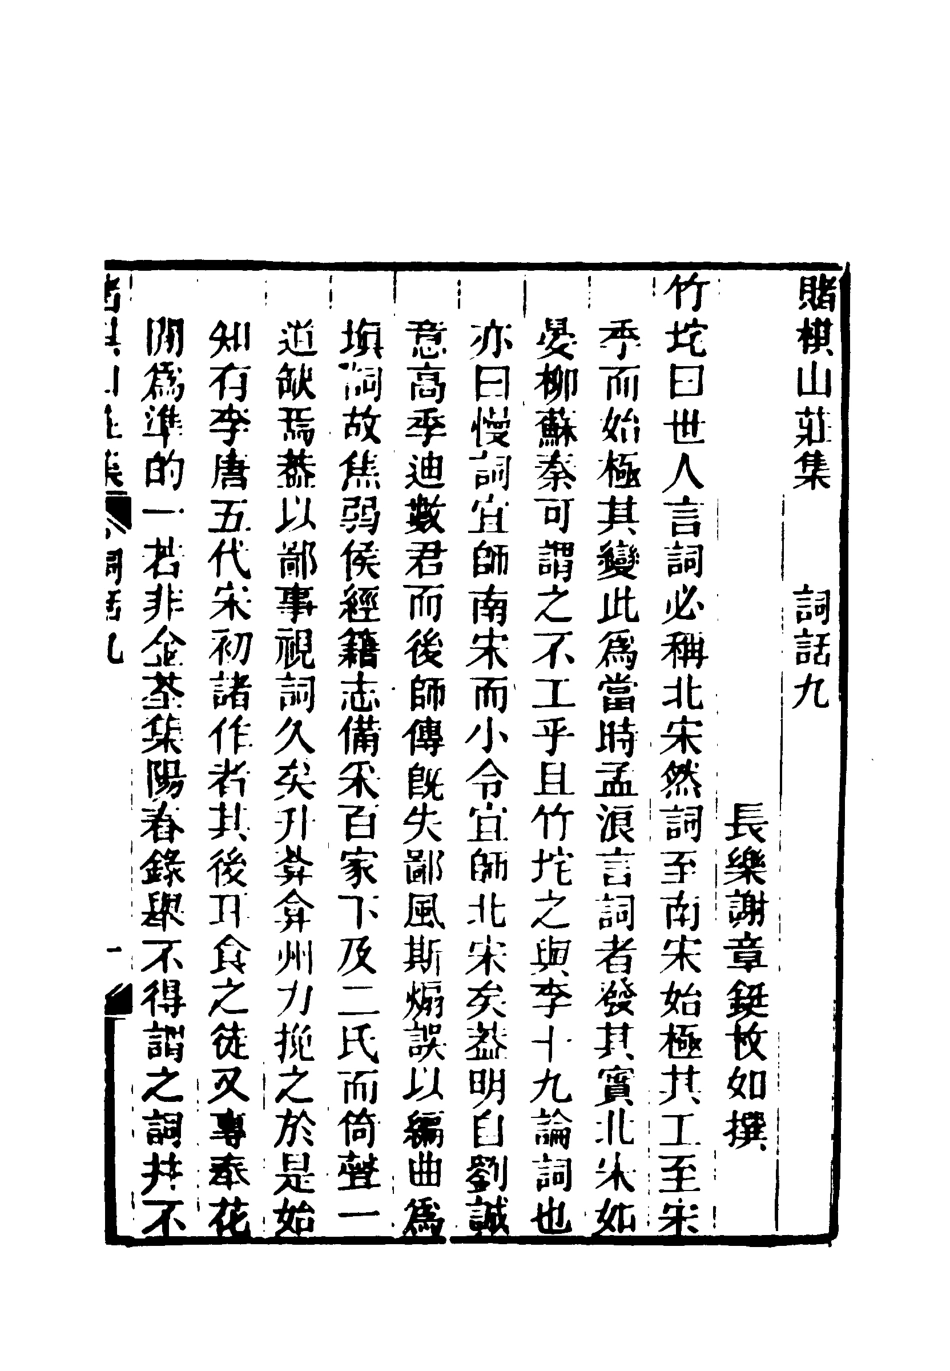 賭棋山莊集　詞話九
長樂謝章鋌枚如撰
竹垞曰世人言詞必稱北宋然詞至南宋始極其工至宋
季而始極其變此爲當時孟浪言詞者發其實北宋如
晏柳蘇秦可謂之不工乎且竹垞之與李十九論詞也
亦曰慢詞宜師南宋而小令宜師北宋矣葢明自劉誠
意高季迪數君而後師傳旣失鄙風斯煽誤以編曲爲
塡詞故焦弱侯經籍志備采百家下及二氏而倚聲一
道缺焉葢以鄙事視詞久矣升菴弇州力挽之於是始
知有李唐五代宋初諸作者其後耳食之徒又專奉花
間爲準的一若非金荃集陽春錄舉不得謂之詞幷不
賭棋山莊集　詞話九　一